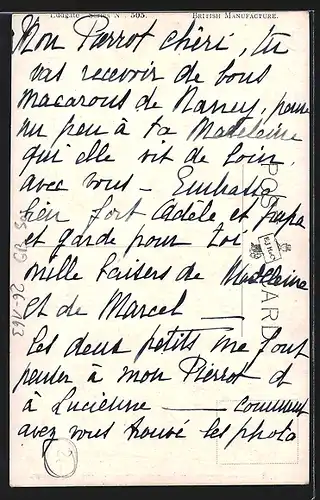 Ludgate Series No 505. BRITISH MANUFACTURE.
Mon Pierrot chéri, tu
vas recevoir de bons
macarons de Nancy, pense
un peu à ta Madeleine
qui elle vit de loin
avec vous - Embrasse
bien fort Adèle et papa
et garde pour toi
mille baisers de Madeleine
et de Marcel
Les deux petits me font
penser à mon Pierrot et
à Lucienne comment
avez vous trouvé les photo
POST CARD
26-163